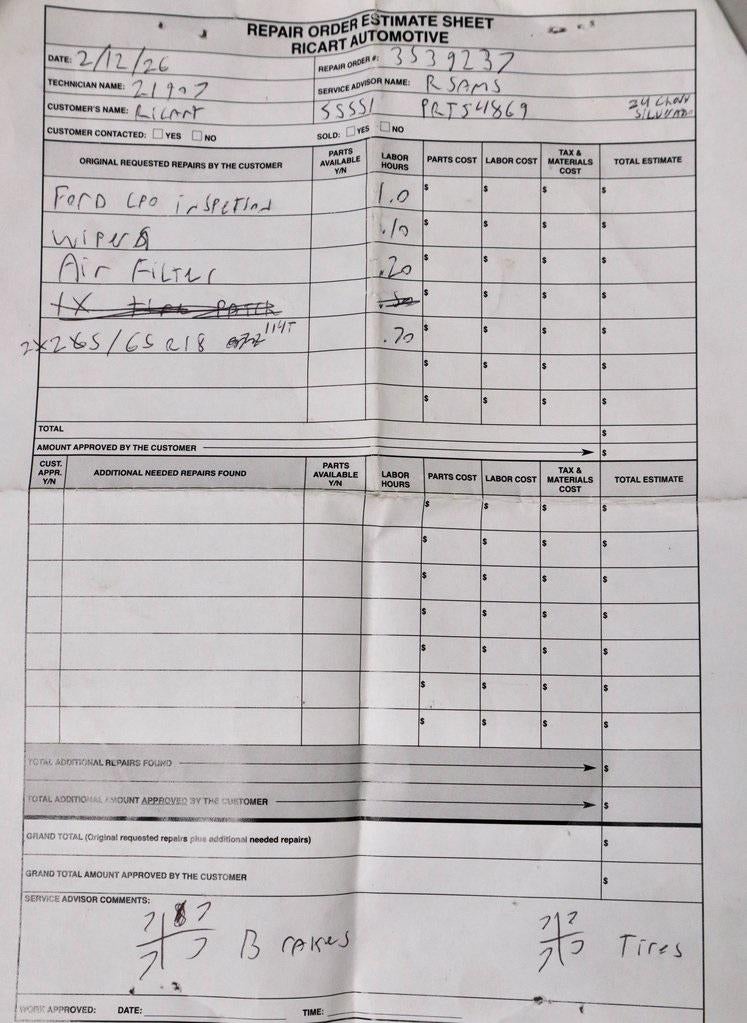 REPAIR ORDER ESTIMATE SHEET
RICART AUTOMOTIVE
DATE: 2/12/26 REPAIR ORDER #: 3539237
TECHNICIAN NAME: 21907 SERVICE ADVISOR NAME: R SAMS
CUSTOMER'S NAME: Ricart SSSS1 PRT54869 24 Chevy
SILVERADO
CUSTOMER CONTACTED: YES NO SOLD: YES NO
ORIGINAL REQUESTED REPAIRS BY THE CUSTOMER PARTS AVAILABLE Y/N LABOR HOURS PARTS COST LABOR COST TAX & MATERIALS COST TOTAL ESTIMATE
Ford CPO inspetion 1.0 $ $ $ $
Wipers .10 $ $ $ $
Air Filter .20 $ $ $ $
1X PATCH .50 $ $ $ $
2x265/65R18 114T .70 $ $ $ $
$ $ $ $
$ $ $ $
TOTAL $
AMOUNT APPROVED BY THE CUSTOMER $
CUST. APPR. Y/N ADDITIONAL NEEDED REPAIRS FOUND PARTS AVAILABLE Y/N LABOR HOURS PARTS COST LABOR COST TAX & MATERIALS COST TOTAL ESTIMATE
$ $ $ $
$ $ $ $
$ $ $ $
$ $ $ $
$ $ $ $
$ $ $ $
$ $ $ $
TOTAL ADDITIONAL REPAIRS FOUND $
TOTAL ADDITIONAL AMOUNT APPROVED BY THE CUSTOMER $
GRAND TOTAL (Original requested repairs plus additional needed repairs) $
GRAND TOTAL AMOUNT APPROVED BY THE CUSTOMER $
SERVICE ADVISOR COMMENTS:
7 7 7 7
7 7 Brakes 7 7 Tires
WORK APPROVED: DATE: TIME: